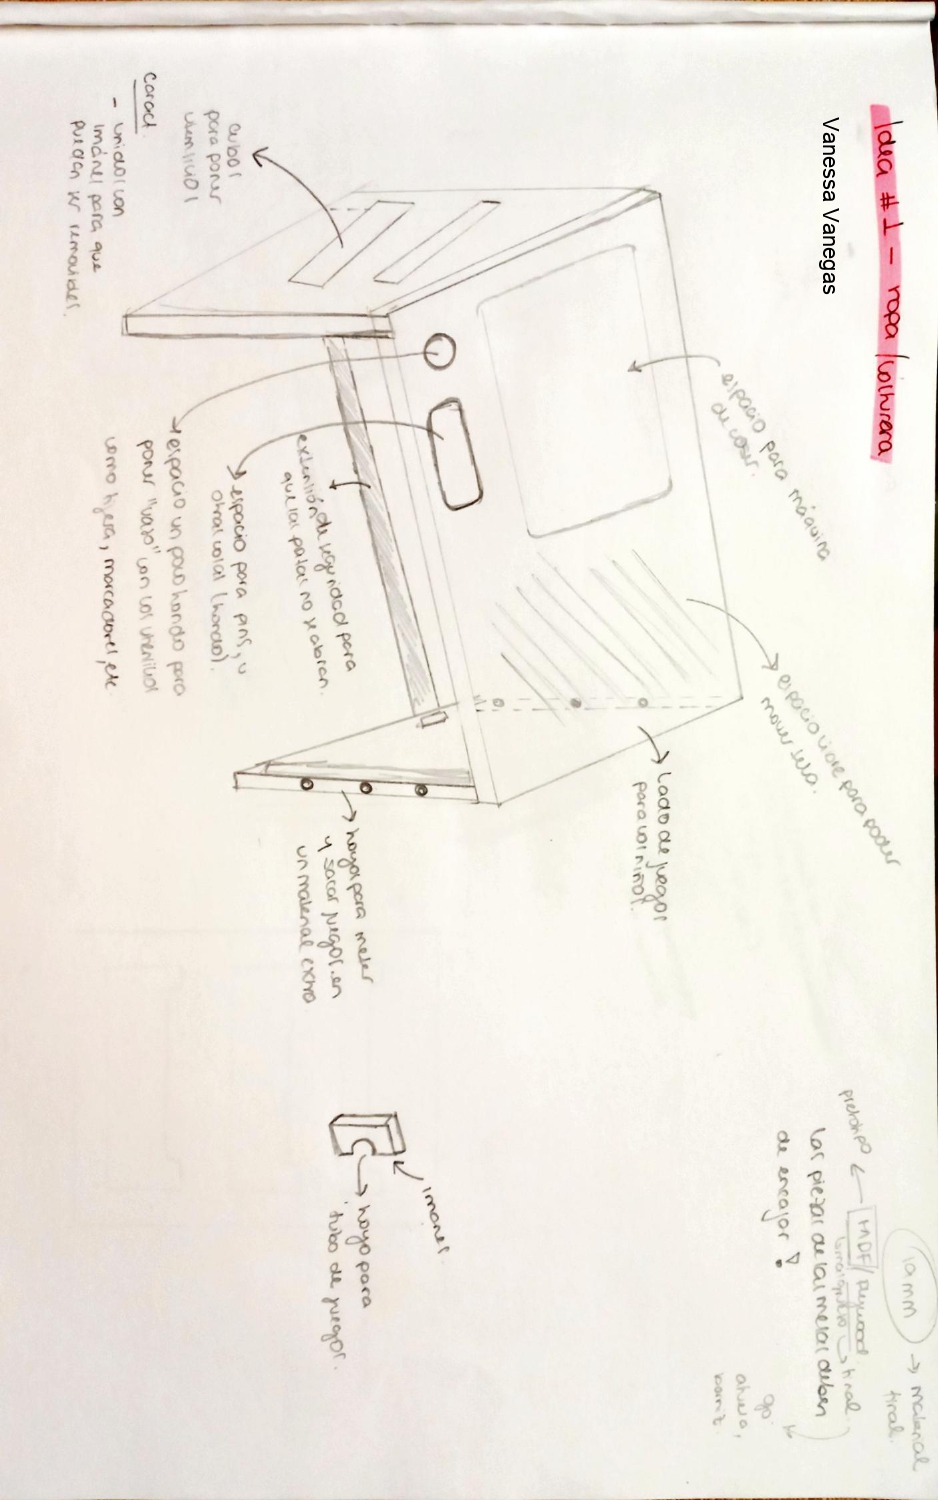 Idea #1 - ropa/costurera
Vanessa Vanegas
espacio para máquina
de coser.
espacio libre para poder
mover tela.
cubos
para poner
utensilios
Caract.
- unidos con
imanes para que
puedan ser removidos.
extensión de seguridad para
que las patas no se abran.
espacio para pins, u
otras cosas (hondo).
espacio un poco hondo para
poner "vaso" con los utensilios
como tijera, marcadores, etc
Lado de juegos
para los niños.
hoyos para meter
y sacar juegos en
un material extra
imanes.
hoyo para
tubo de juegos.
→ material
final.
prototipo ← MDF/plywood
→ final
las piezas de las mesas deben
de encajar!
barniz.